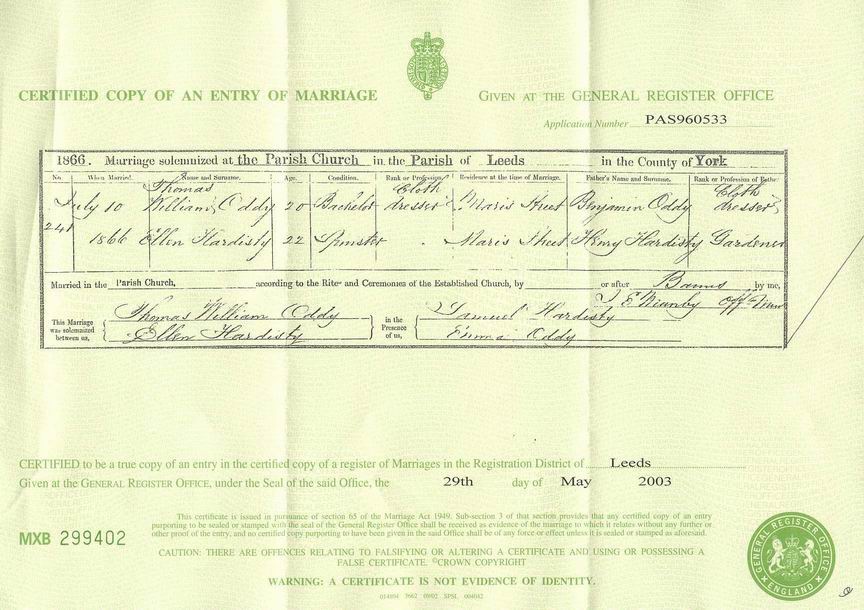 CERTIFIED COPY OF AN ENTRY OF MARRIAGE
GIVEN AT THE GENERAL REGISTER OFFICE
Application Number PAS960533
1866. Marriage solemnized at the Parish Church in the Parish of Leeds in the County of York
No. When Married. Name and Surname. Age. Condition. Rank or Profession. Residence at the time of Marriage. Father's Name and Surname. Rank or Profession of Father.
241 July 10 1866
Thomas William Oddy 20 Bachelor Cloth dresser Maris Street Benjamin Oddy Cloth dresser
Ellen Hardisty 22 Spinster Maris Street Henry Hardisty Gardener
Married in the Parish Church, according to the Rites and Ceremonies of the Established Church, by or after Banns by me,
This Marriage was solemnized between us, Thomas William Oddy
Ellen Hardisty
in the Presence of us, Samuel Hardisty
Emma Oddy
CERTIFIED to be a true copy of an entry in the certified copy of a register of Marriages in the Registration District of Leeds
Given at the GENERAL REGISTER OFFICE, under the Seal of the said Office, the 29th day of May 2003
This certificate is issued in pursuance of section 65 of the Marriage Act 1949. Sub-section 3 of that section provides that any certified copy of an entry
purporting to be sealed or stamped with the seal of the General Register Office shall be received as evidence of the marriage to which it relates without any further or
other proof of the entry, and no certified copy purporting to have been given in the said Office shall be of any force or effect unless it is sealed or stamped as aforesaid.
MXB 299402
CAUTION: THERE ARE OFFENCES RELATING TO FALSIFYING OR ALTERING A CERTIFICATE AND USING OR POSSESSING A
FALSE CERTIFICATE. ©CROWN COPYRIGHT
WARNING: A CERTIFICATE IS NOT EVIDENCE OF IDENTITY.
GENERAL REGISTER OFFICE
ENGLAND